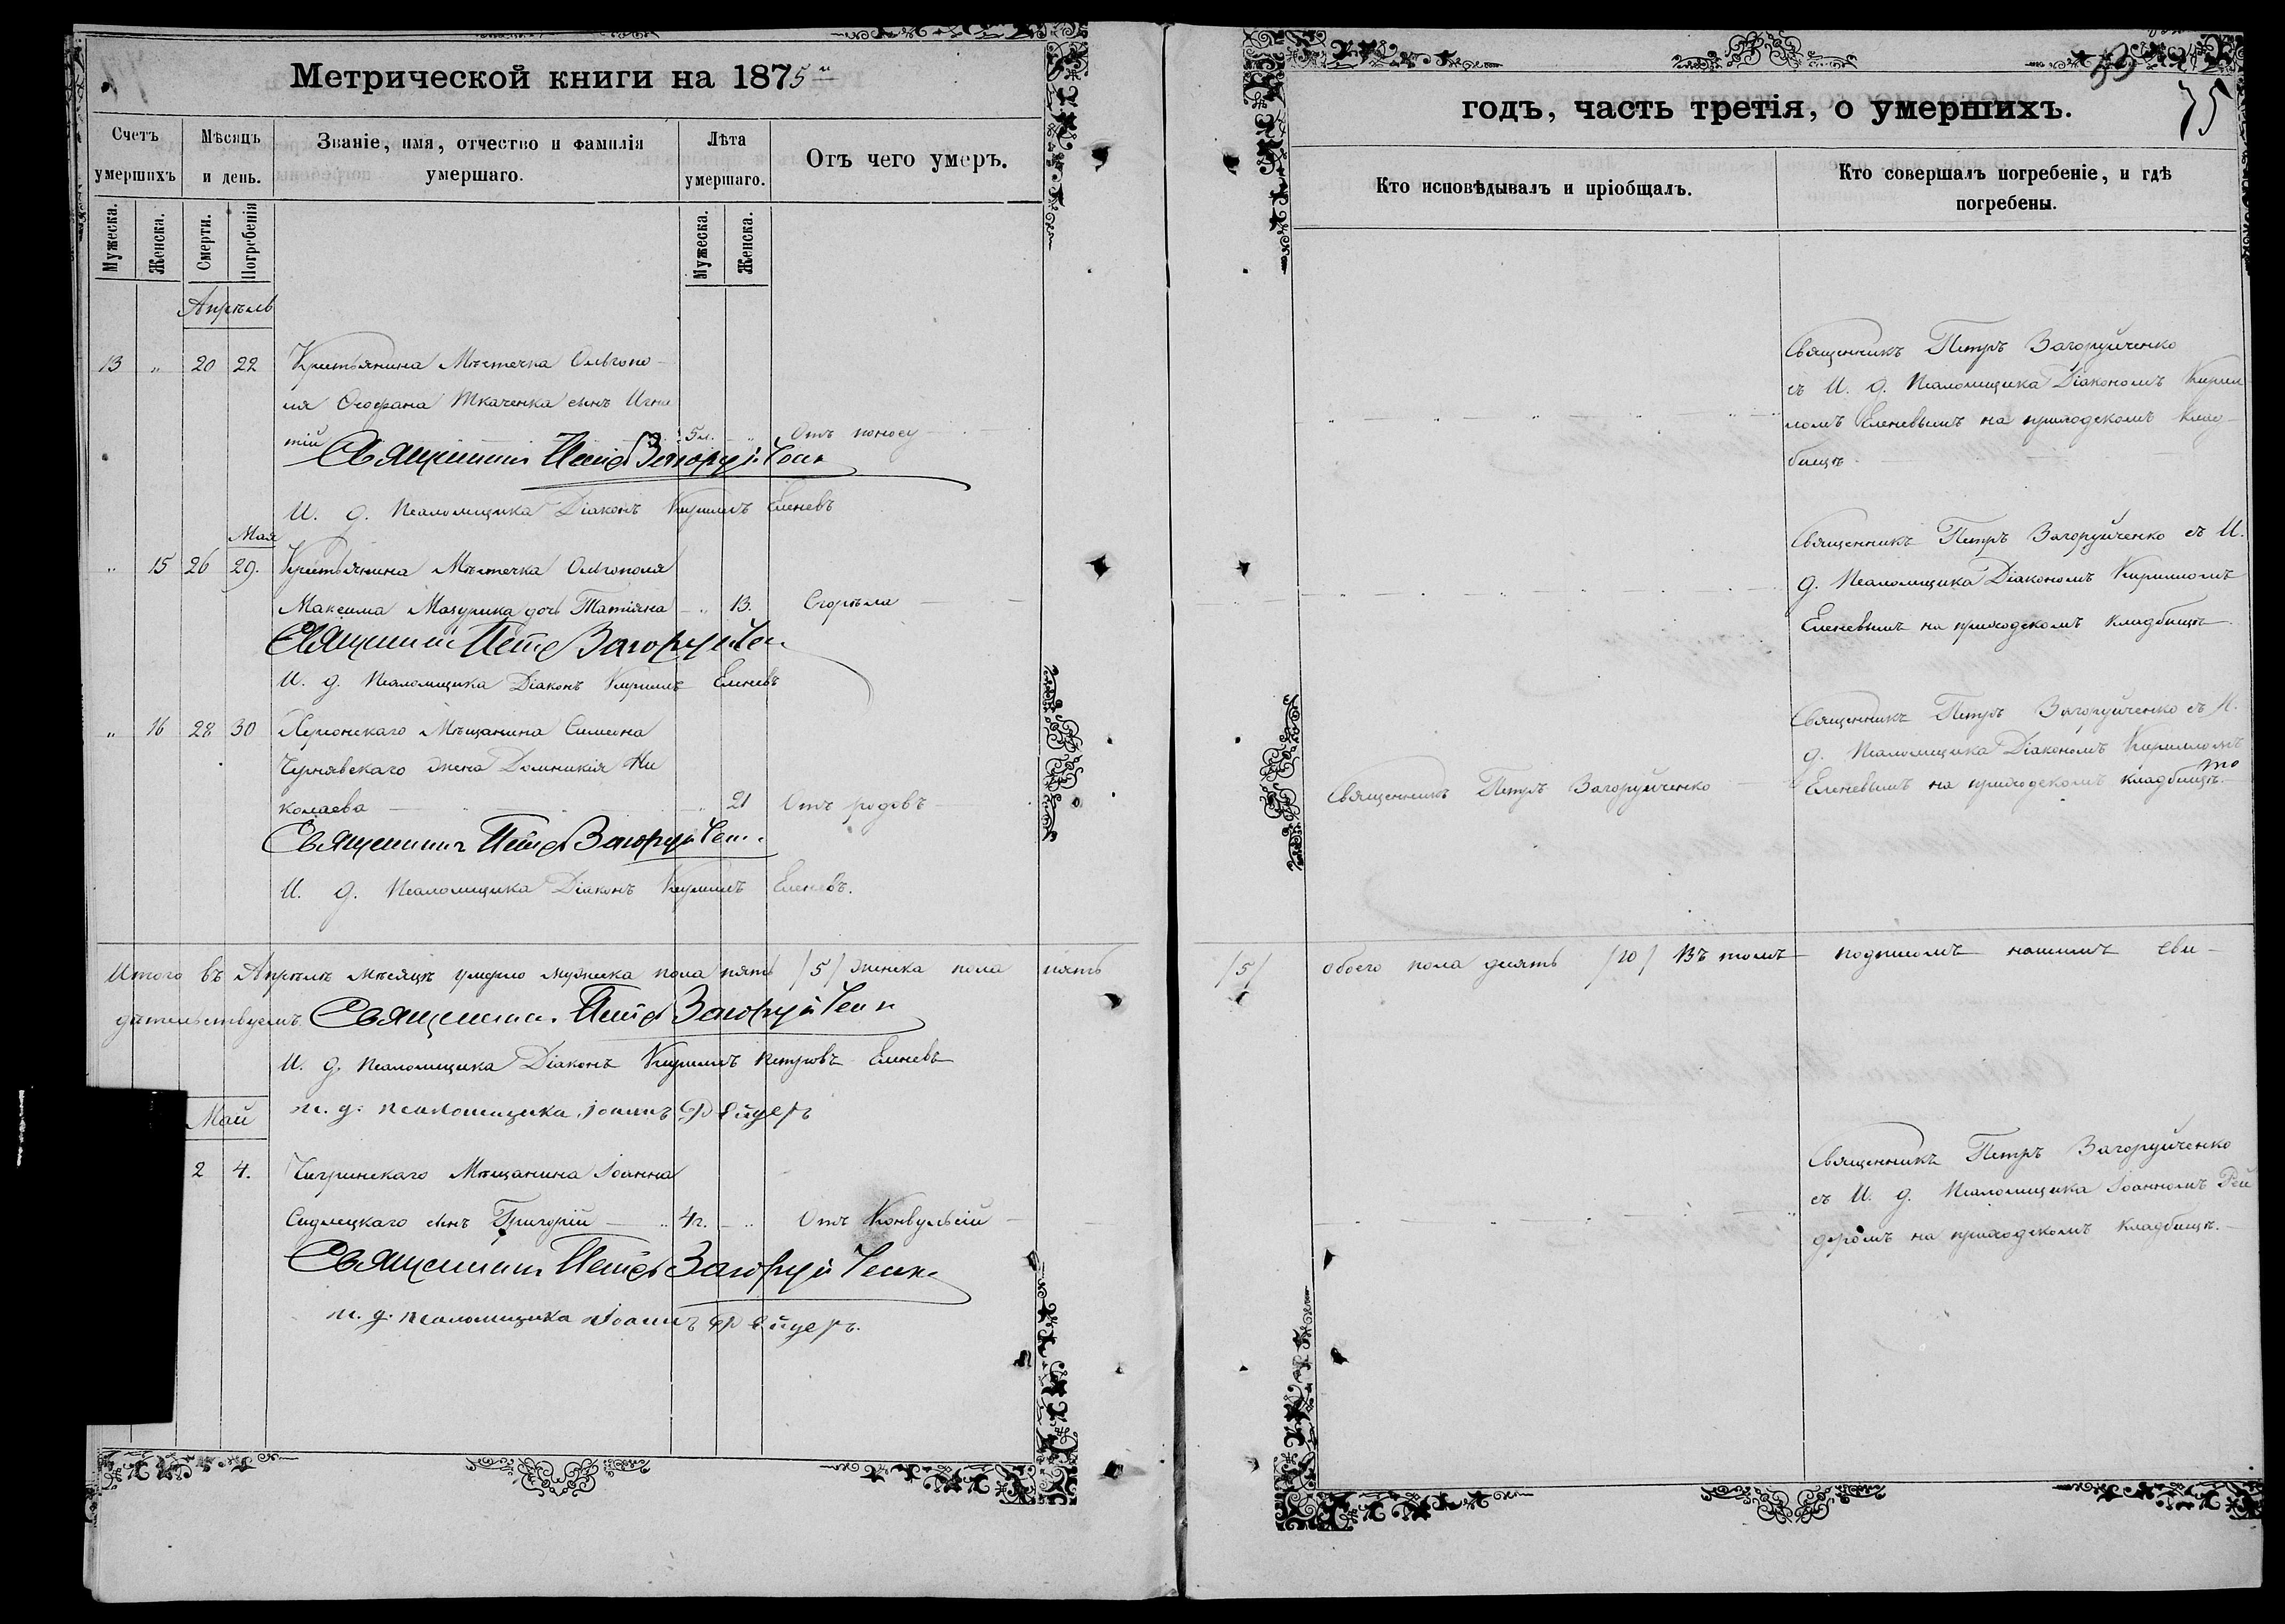 Метрической книги на 1875й
Счетъ умершихъ
Мѣсяцъ и день.
Званіе, имя, отчество и фамилія умершаго.
Лѣта умершаго.
Отъ чего умеръ.
Мужеска.
Женска.
Смерти.
Погребенія
Мужеска.
Женска.
Апрѣль
13 " 20 22 Крестьянина Мѣстечка Ольгопо-
ля Ѳеофана Ткаченка сынъ Игна
тій 5 м. " Отъ поносу
Священникъ Петръ Загоруйченко
И. д. Псаломщика Діаконъ Кириллъ Еленевъ
Мая
" 15 26 29. Крестьянина Мѣстечка Ольгополя
Максима Мазурика дочь Татіяна " 13. Сгорѣла
Священникъ Петръ Загоруйченко
И. д. Псаломщика Діаконъ Кириллъ Еленевъ
" 16 28 30 Херсонскаго Мѣщанина Симеона
Чернявскаго жена Домникія Ни
колаева " 21 Отъ родовъ
Священникъ Петръ Загоруйченко
И. д. Псаломщика Діаконъ Кириллъ Еленевъ.
Итого въ Апрѣлѣ мѣсяцѣ умерло мужеска пола пять /5/ женска пола пять
дѣтельствуемъ. Священникъ Петръ Загоруйченко
И. д. Псаломщика Діаконъ Кириллъ Петровъ Еленевъ
и. д. псаломщика Іоаннъ Рейдеръ
Май
2 4. Чигринскаго Мѣщанина Іоанна
Сидлецкаго сынъ Григорій " 4 г. " Отъ Конвульсій
Священникъ Петръ Загоруйченко
и. д. псаломщика Іоаннъ Рейдеръ.
59
75
годъ, часть третія, о умершихъ.
Кто исповѣдывалъ и пріобщалъ.
Кто совершалъ погребеніе, и гдѣ погребены.
Священникъ Петръ Загоруйченко
съ И. д. Псаломщика Діакономъ Кирил
ломъ Еленевымъ на приходскомъ клад-
бищѣ
Священникъ Петръ Загоруйченко съ И.
д. Псаломщика Діакономъ Кирилломъ
Еленевымъ на приходскомъ кладбищѣ.
Священникъ Петръ Загоруйченко съ И.
д. Псаломщика Діакономъ Кирилломъ
Священникъ Петръ Загоруйченко Еленевымъ на приходскомъ кладбищѣ.
/5/ обоего пола десять /10/ Въ томъ подписомъ нашимъ сви-
Священникъ Петръ Загоруйченко
съ И. д. Псаломщика Іоанномъ Рей
деромъ на приходскомъ кладбищѣ.